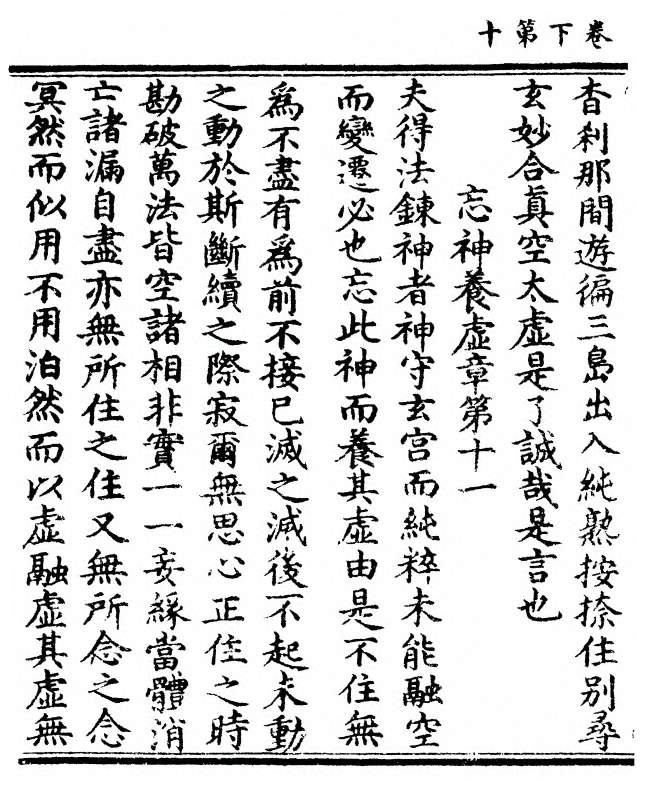 卷下第十
杳刹那間遊徧三島出入純熟按捺住别尋
玄妙合真空太虛是了誠哉是言也
忘神養虛章第十一
夫得法鍊神者神守玄宮而純粹未能融空
而變遷必也忘此神而養其虛由是不住無
為不盡有為前不接已滅之滅後不起未動
之動於斯斷續之際寂爾無思心正住之時
勘破萬法皆空諸相非實一一妄緣當體消
亡諸漏自盡亦無所住之住又無所念之念
冥然而似用不用泊然而以虛融虛其虛無